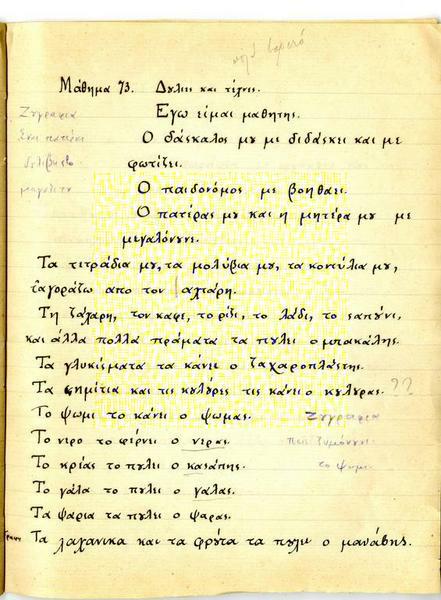 πολύ βαρετό
Μάθημα 73. Δυλιες και τέχνες.
Ζυγραφια
Εγω είμαι μαθητης.
Ο δάσκαλος μυ με διδάσκει και με
φωτίζει.
Ο παιδονόμος με βοηθαει.
Ο πατέρας μυ και η μητέρα μυ με
μεγαλόνυνε.
Τα τετράδια μυ, τα μολύβια μυ, τα κοντύλια μυ,
τ'αγοράζω απο τον αχτάρη.
Τη ζάχαρη, τον καφε, το ρίζι, το λάδι, το σαπύνι,
και άλλα πολλα πράματα τα πυλει ο μπακάλης.
Τα γλυκίσματα τα κάνει ο ζαχαροπλάστης.
Τα σημίτια και τις κυλύρες τις κάνει ο κυλυρας. ??
Το ψωμι το κάνει ο ψωμας. Ζυγραφια
Το νερο το φέρνει ο νερας. πυ ζυμόνυνε
Το κρέας το πυλει ο κασάπης. το ψωμι.
Το γάλα το πυλει ο γαλας.
Τα ψάρια τα πυλει ο ψαρας.
Τα λαχανικα και τα φρύτα τα πυλει ο μανάβης.